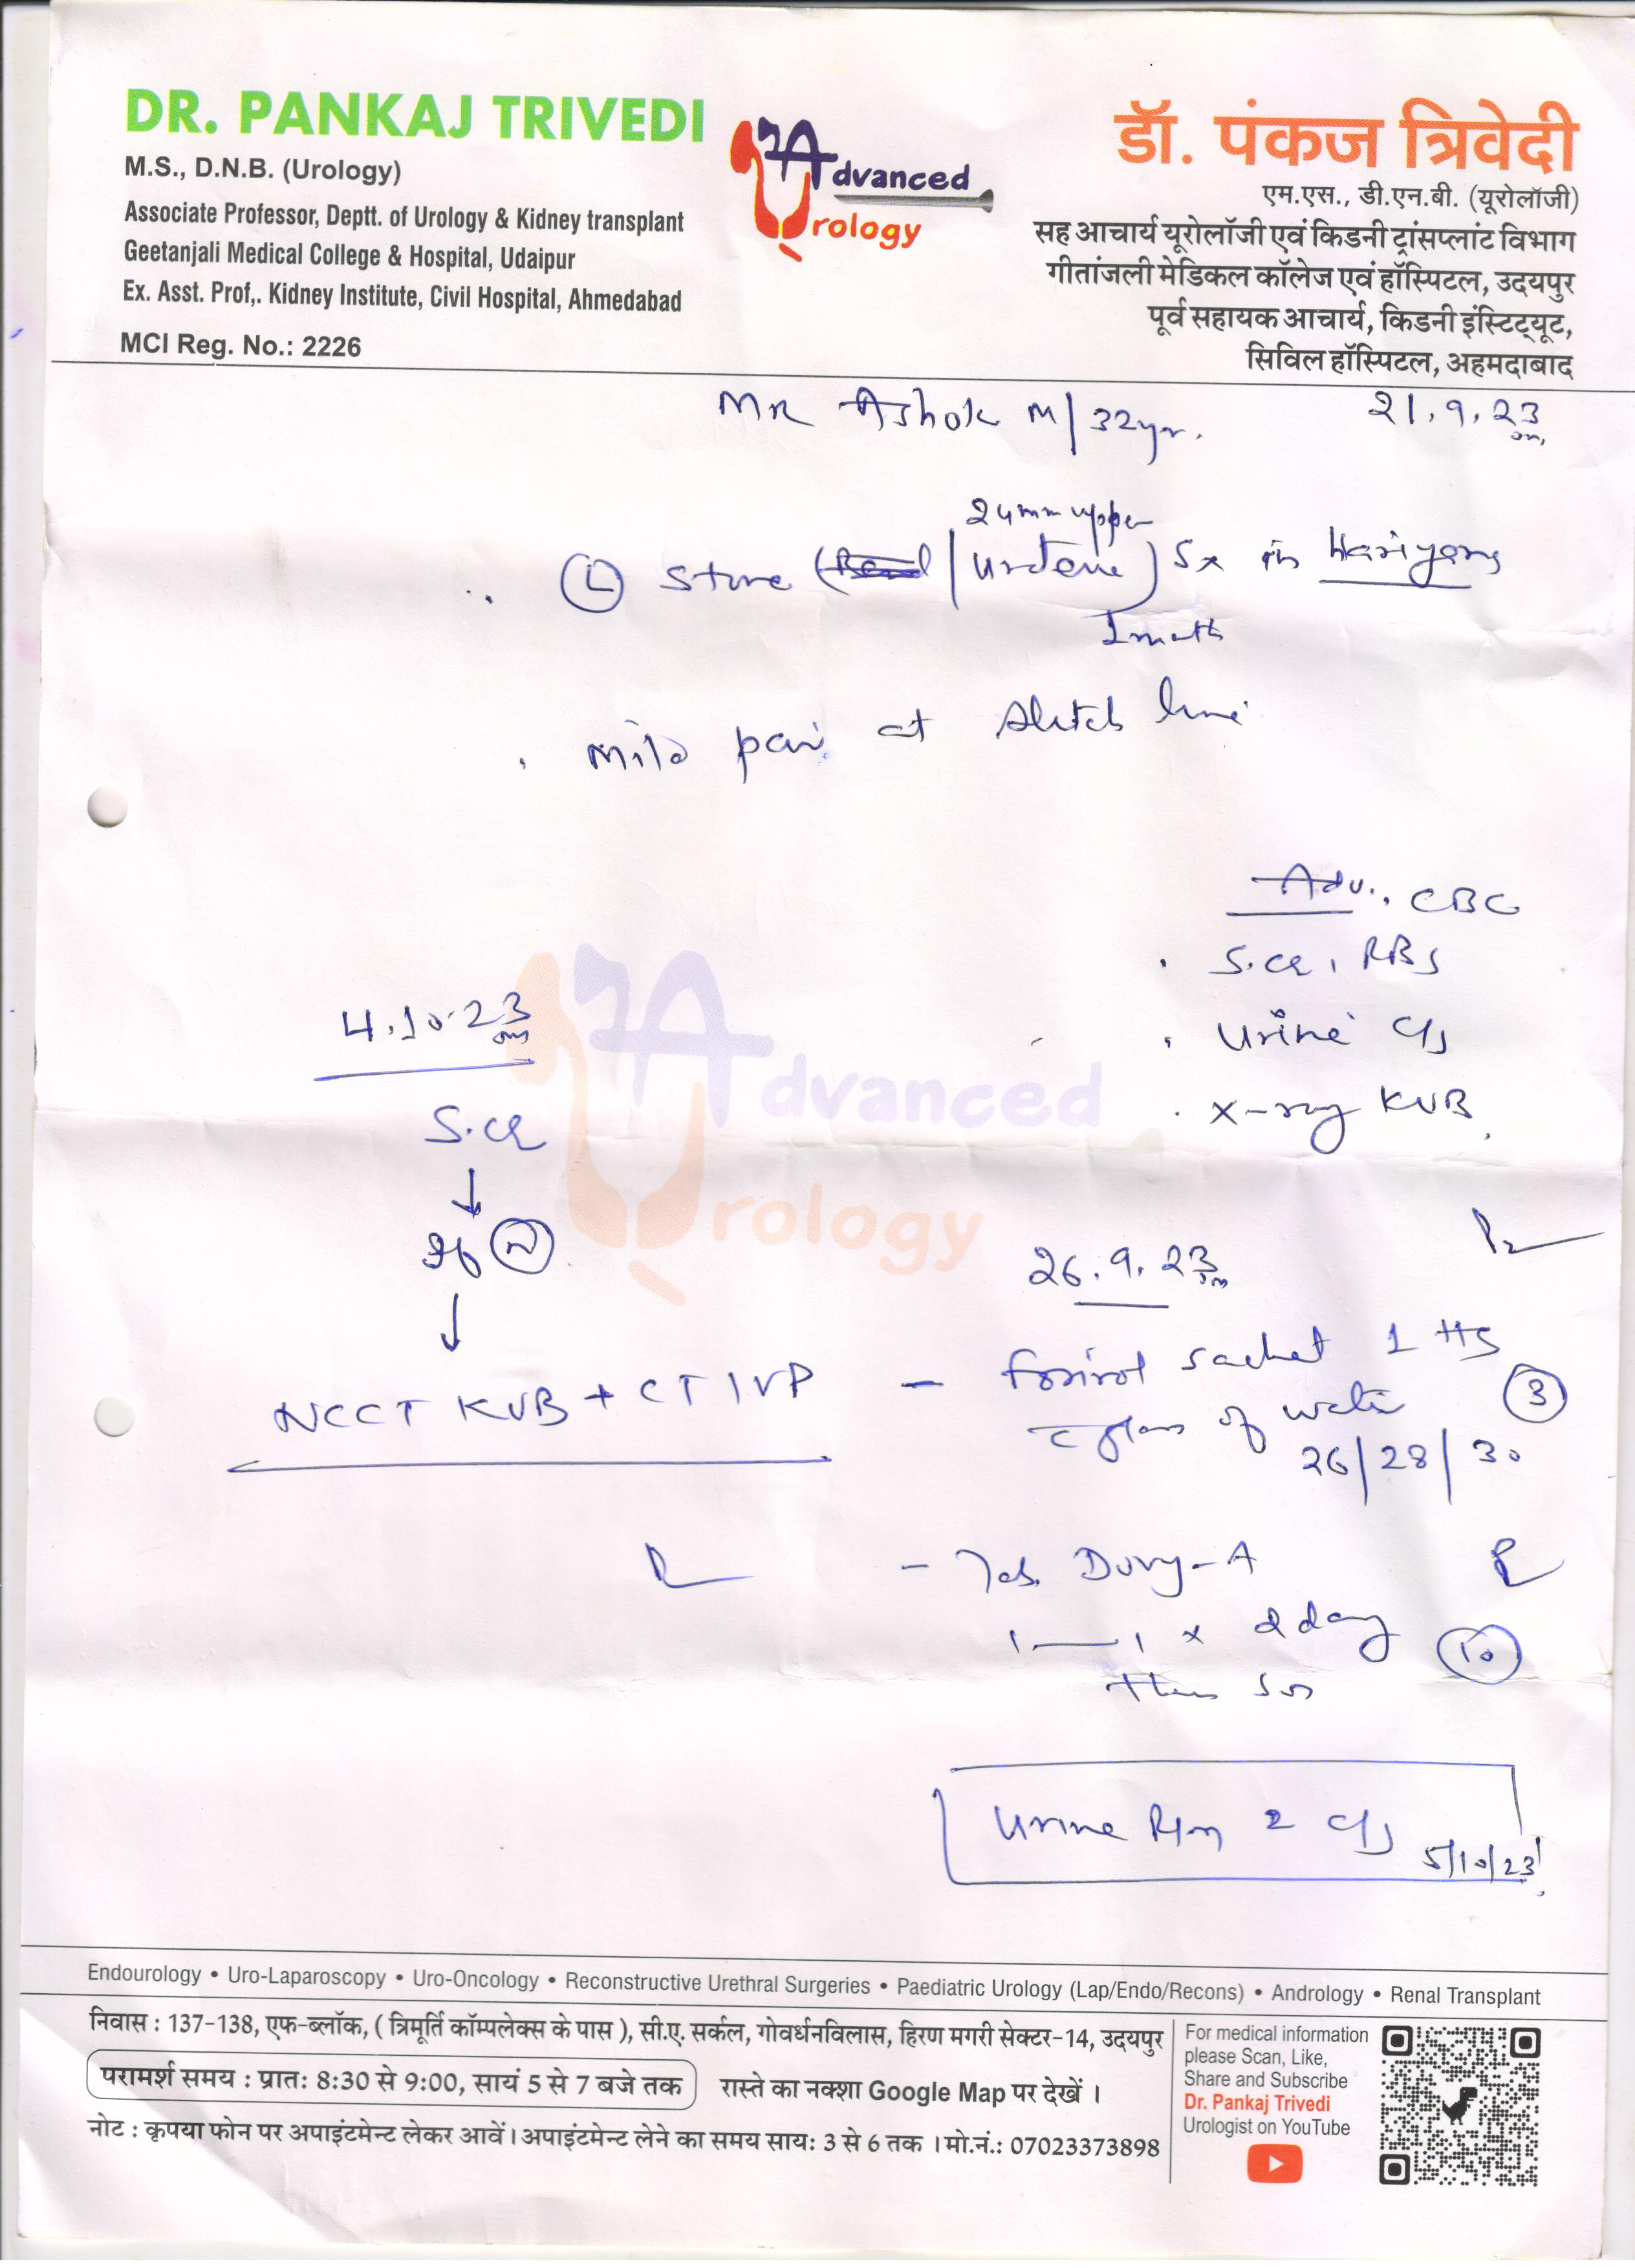 DR. PANKAJ TRIVEDI
M.S., D.N.B. (Urology)
Associate Professor, Deptt. of Urology & Kidney transplant
Geetanjali Medical College & Hospital, Udaipur
Ex. Asst. Prof,. Kidney Institute, Civil Hospital, Ahmedabad
MCI Reg. No.: 2226
Advanced
Urology
डॉ. पंकज त्रिवेदी
एम.एस., डी.एन.बी. (यूरोलॉजी)
सह आचार्य यूरोलॉजी एवं किडनी ट्रांसप्लांट विभाग
गीतांजली मेडिकल कॉलेज एवं हॉस्पिटल, उदयपुर
पूर्व सहायक आचार्य, किडनी इंस्टिट्यूट,
सिविल हॉस्पिटल, अहमदाबाद
MR Ashok M/32yr. 21.9.23
24mm upper
(L) stone Sx in
mild at line
Adv. CBC
S.Cr, RBS
Urine C/S
X-ray KUB
4.10.23
S.Cr
(N)
Advanced
Urology
26.9.23
NCCT KUB + CT IVP
- sachet 1 HS
glass of water (3)
26/28/30
- Tab.
1—1 x 2 day (10)
then
Urine C/S 5/10/23
Endourology • Uro-Laparoscopy • Uro-Oncology • Reconstructive Urethral Surgeries • Paediatric Urology (Lap/Endo/Recons) • Andrology • Renal Transplant
निवास : 137-138, एफ-ब्लॉक, ( त्रिमूर्ति कॉम्पलेक्स के पास ), सी.ए. सर्कल, गोवर्धनविलास, हिरण मगरी सेक्टर-14, उदयपुर
परामर्श समय : प्रातः 8:30 से 9:00, सायं 5 से 7 बजे तक रास्ते का नक्शा Google Map पर देखें ।
नोट : कृपया फोन पर अपाइंटमेन्ट लेकर आवें। अपाइंटमेन्ट लेने का समय सायः 3 से 6 तक । मो.नं.: 07023373898
For medical information
please Scan, Like,
Share and Subscribe
Dr. Pankaj Trivedi
Urologist on YouTube